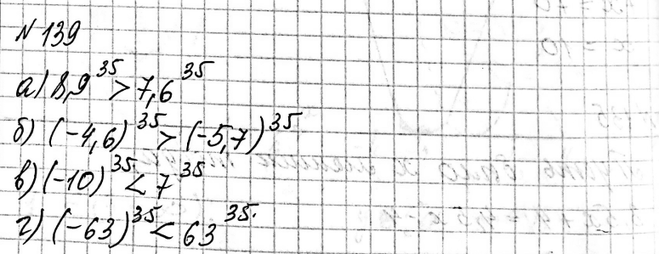 N 139
а) 8,9³⁵ > 7,6³⁵
б) (-4,6)³⁵ > (-5,7)³⁵
в) (-10)³⁵ < 7³⁵
г) (-63)³⁵ < 63³⁵.